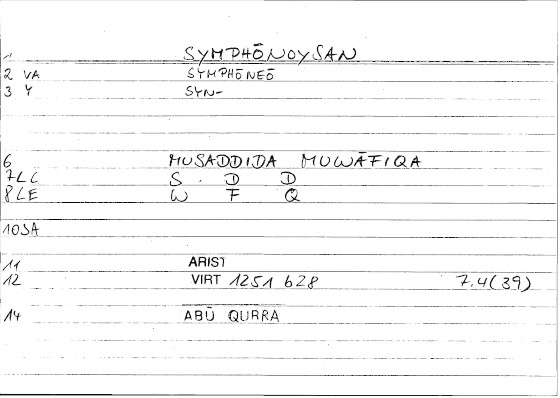 1 SYMPHŌNOYSAN
2 VA SYMPHŌNEŌ
3 Y SYN-
6 MUSADDIDA MUWĀFIQA
7LC S . D D
8LE W F Q
10SA
11 ARIST
12 VIRT 1251 b28 7.4(39)
14 ABŪ QURRA